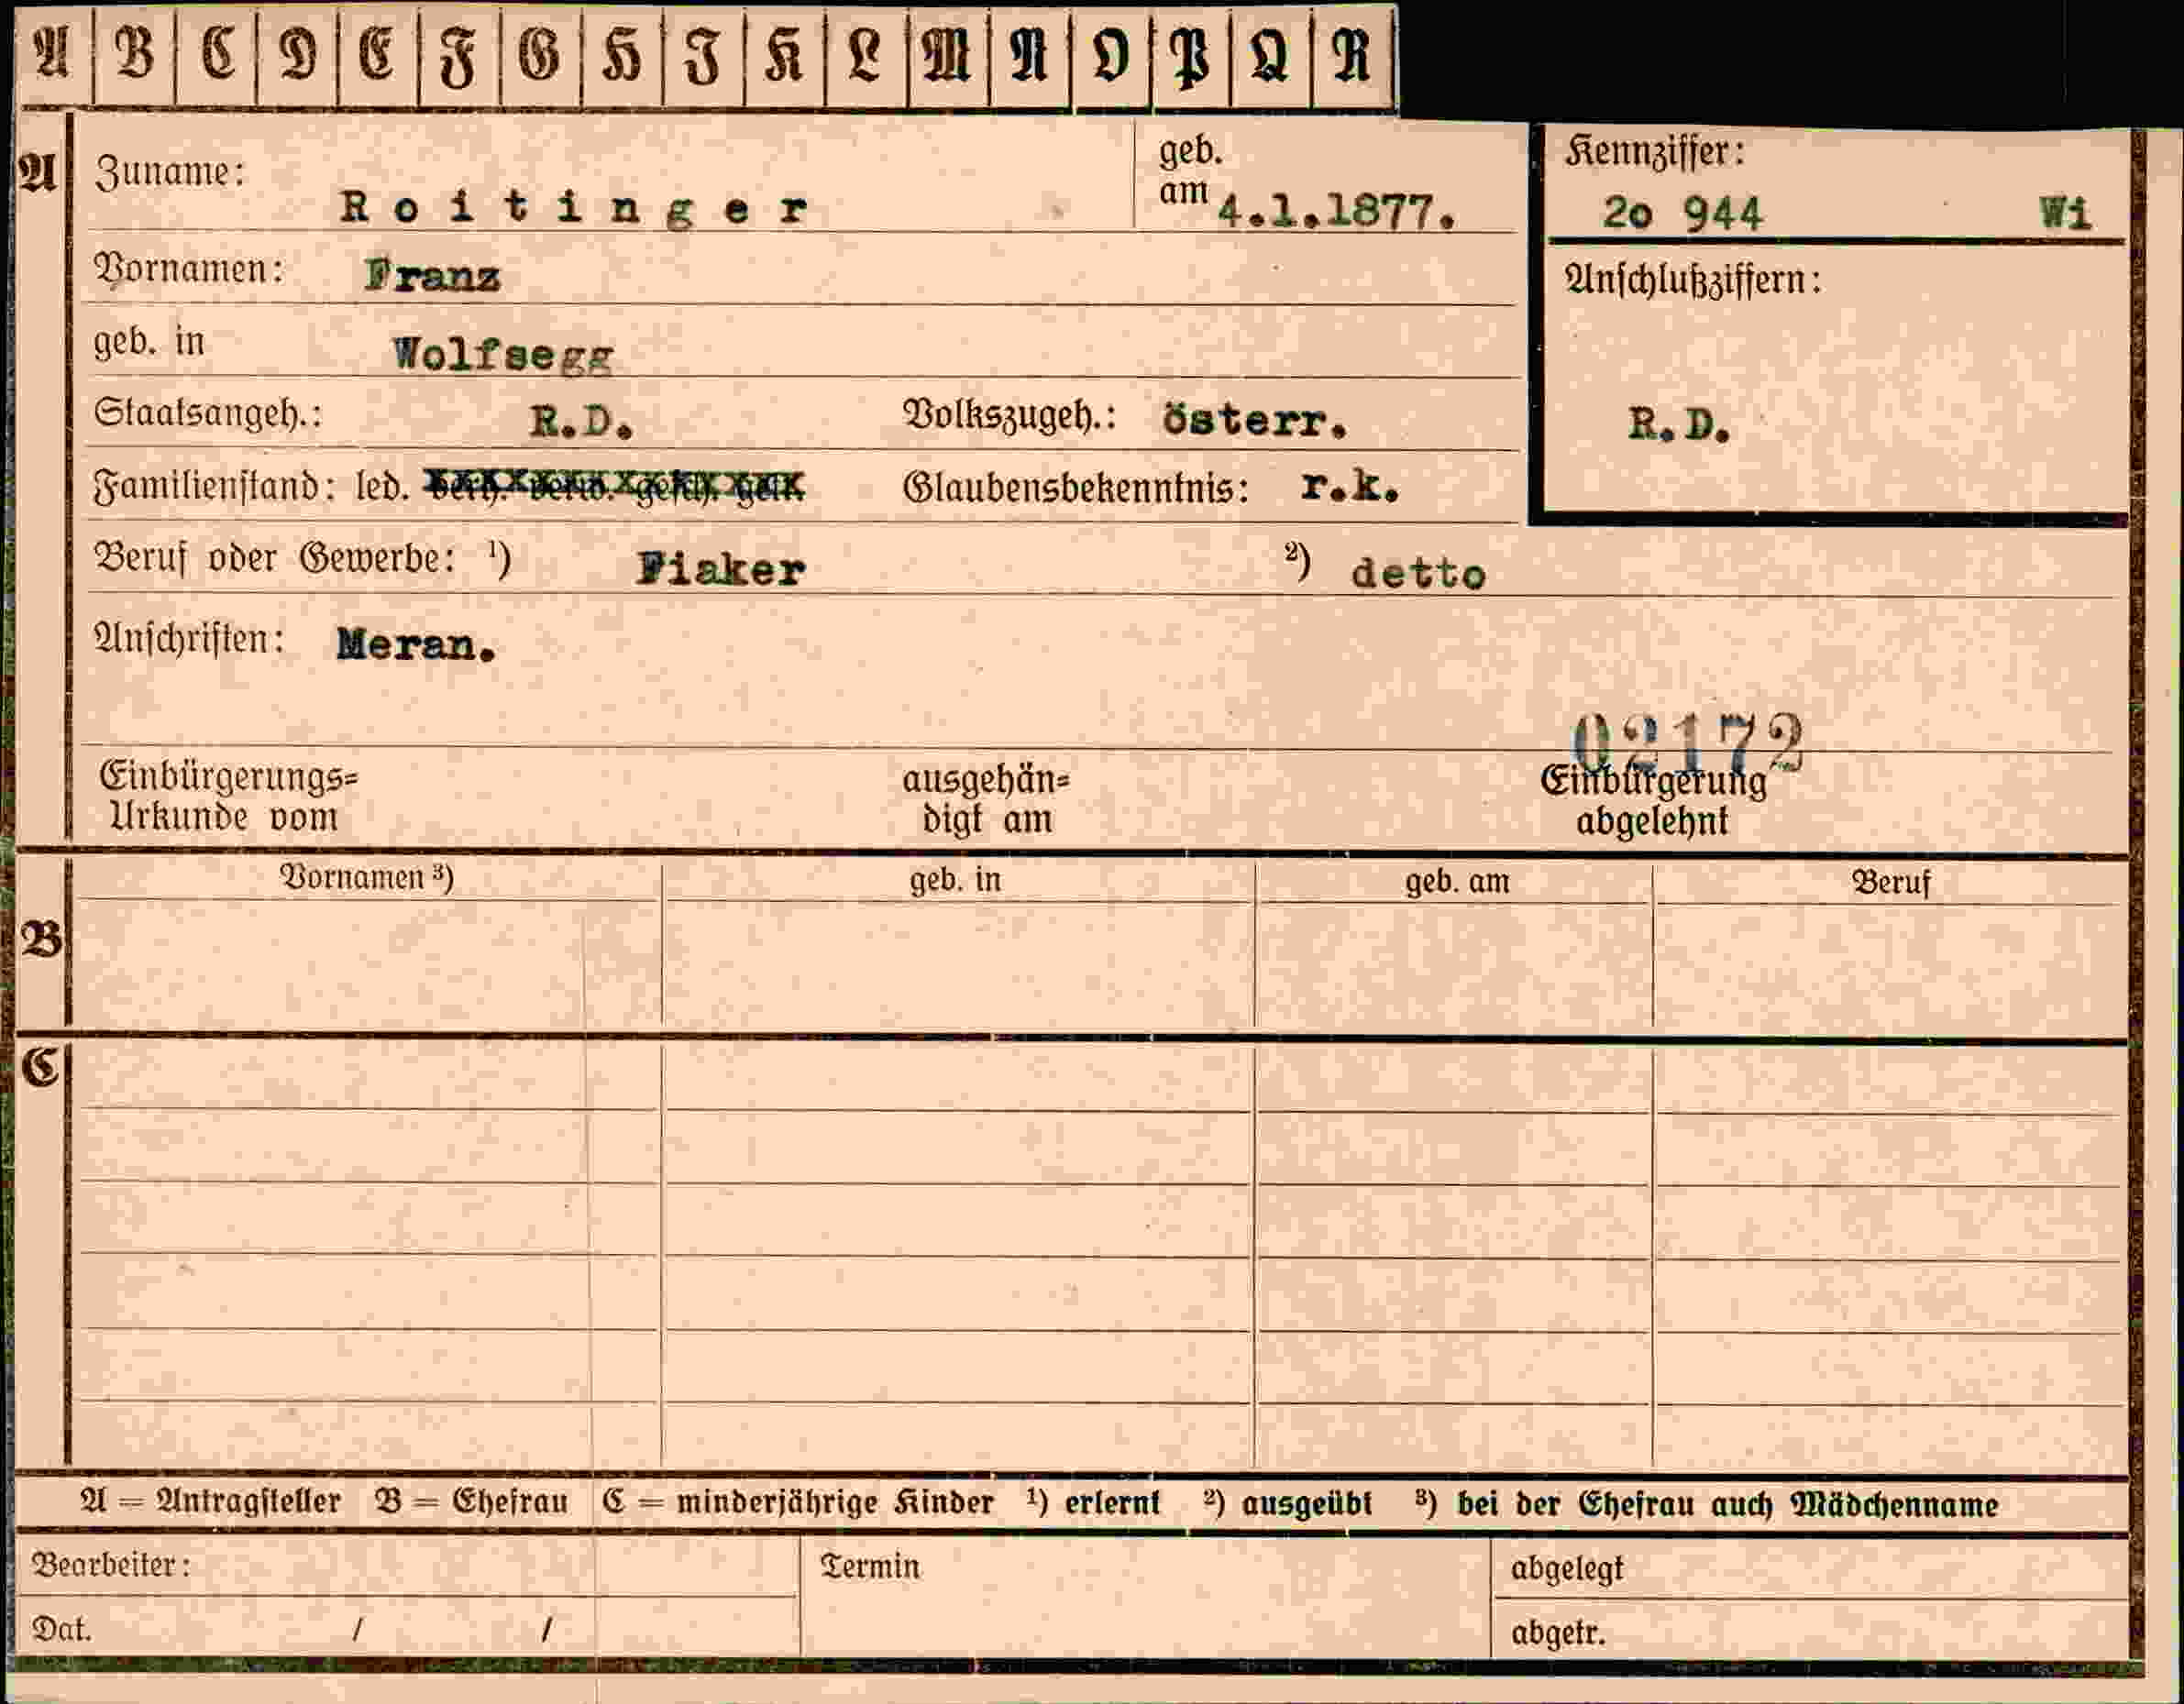 A B C D E F G H I K L M N O P Q R
A Zuname: Roitinger geb. am 4.1.1877.
Kennziffer: 2o 944 Wi
Vornamen: Franz
Anschlußziffern:
geb. in Wolfsegg
Staatsangeh.: R.D. Volkszugeh.: österr.
R.D.
Familienstand: led. verh. verw. gesch. Glaubensbekenntnis: r.k.
Beruf oder Gewerbe: ¹) Fiaker ²) detto
Anschriften: Meran.
02172
Einbürgerungs= ausgehän= Einbürgerung
Urkunde vom digt am abgelehnt
Vornamen ³) geb. in geb. am Beruf
B
C
A = Antragsteller B = Ehefrau C = minderjährige Kinder ¹) erlernt ²) ausgeübt ³) bei der Ehefrau auch Mädchenname
Bearbeiter: Termin abgelegt
Dat. / / abgetr.